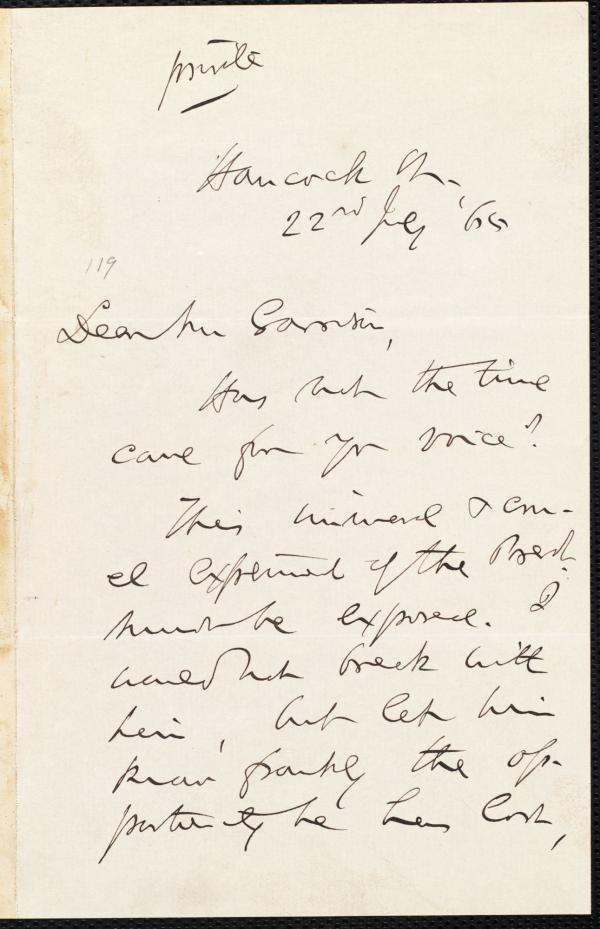 private
Hancock St.,
22nd July '65
119
Dear Mr Garrison,
Has not the time
come for yr voice?
This immoral & cru-
el experiment of the Presdt.
must be exposed. I
would not break with
him, but let him
know frankly the op-
portunity he has lost,